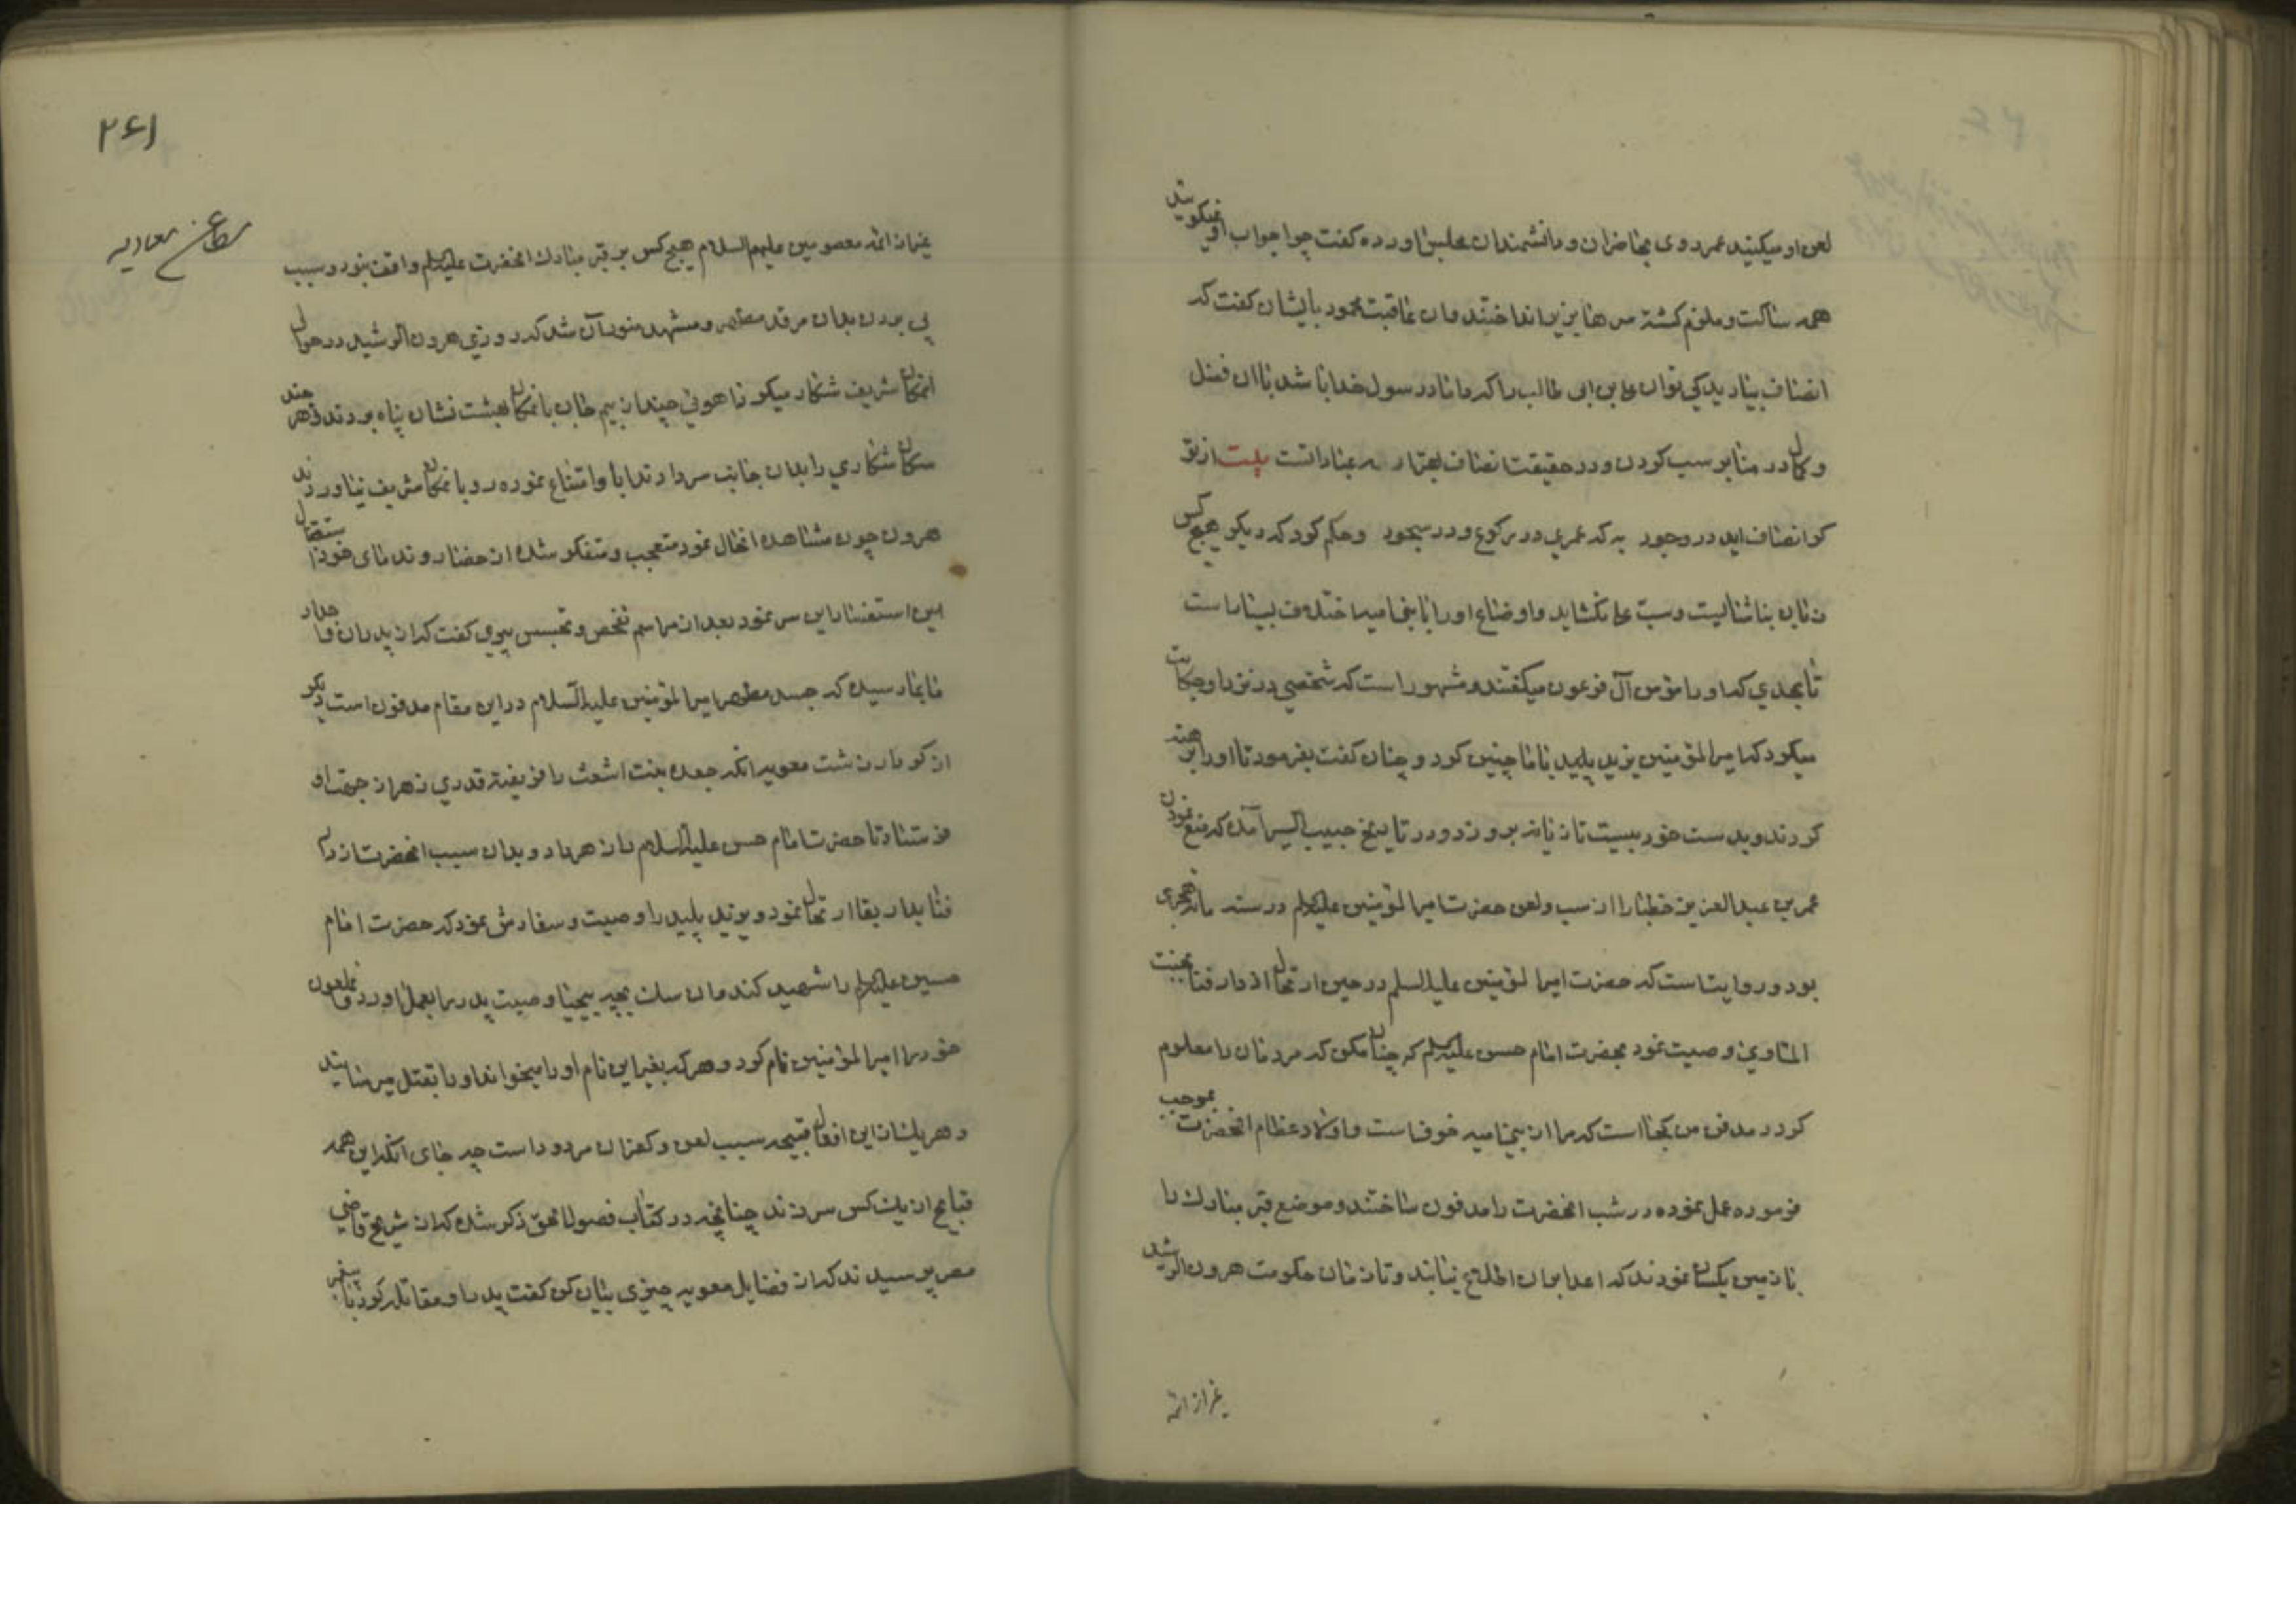 لعن او میکنید عمر روی بحاضران و دانشمندان مجلس اورده کفت چرا جواب او نمیکویید
همه ساکت و ملزم کشته سرها بزیر انداختند وان عاقبت محمود بایشان کفت که
انصاف بیارید کی توان علی بن ابی طالب را که داماد رسول خدا باشد باان فضل
و کمال در منابر سب کردن و در حقیقت انصاف بیت از تو
کر انصاف اید در وجود به که عمری در رکوع و در سجود وحکم کرد که دیکر هیچ کس
زبان بناشایست و سب علی نکشاید واوضاع او را با بنی امیه اختلاف بسیار است
تابحدی که او را مؤمن آل فرعون میکفتند و مشهور است که شخصی در نزد او حکایت
میکرد که امیر المؤمنین یزید پلید باما چنین کرد و چنان کفت بفرمود تا او را برهنه
کردند و بدست خود بیست تازیانه برو زد و در تاریخ حبیب السیر آمده که منع نمودن
عمر بن عبد العزیز خطبا را از سب و لعن حضرت امیر المؤمنین علیه السلم در سنه ماته هجری
بود و روایتست که حضرت امیر المؤمنین علیه السلم در حین ارتحال از دار فنا بجنت
الماوی وصیت نمود بحضرت امام حسن علیه السلم که چنان مکن که مردمان را معلوم
کردد مدفن من کجا است که مرا از بنی امیه خوفست و اولاد عظام انحضرت بموجب
فرموده عمل نموده در شب انحضرت را مدفون ساختند و موضع قبر مبارک را
با زمین یکسان نمودند که اعدا بران اطلاع نیابند و تا زمان حکومت هرون الرشید
غیر از ائمه
۲۶۱
مطاعن معاویه
غیر از ائمه معصومین علیهم السلام هیچ کس بر قبر مبارک انحضرت علیه السلم واقف نبود و سبب
پی بردن بدان مرقد مطهر و مشهد منور آن شد که روزی هرون الرشید در حوالی
انمکان شریف شکار میکرد ناهوئی چند از بیم جان بانمکان بهشت نشان پناه بردند و هر چند
سکان شکاری را بدان جانب سر دادند ابا و امتناع نموده رو بانمکان شریف نیاوردند
هرون چون مشاهده انحال نمود متعجب و متفکر شده از حضار و ندمای خود
این استفسار این سر نمود بعد از مراسم تفحص و تجسس پیری کفت که از پدران و اجداد
بما رسیده که جسد مطهر امیر المؤمنین علیه السلام در این مقام مدفون است دیکر
از کردار زشت معویه انکه جعده بنت اشعث را فریفته قدری زهر از جهت او
فرستاد تا حضرت امام حسن علیه السلام را زهر داد و بدان سبب انحضرت از دار
فنا بدار بقا ارتحال نمود و یزید پلید را وصیت و سفارش نمود که حضرت امام
حسین علیه السلم را شهید کند وان سک بچه بیحیا وصیت پدر را بعمل اورد و ملعون
خود را امیر المؤمنین نام کرد و هر که بغیر این نام او را میخواند او را بقتل میرسانید
و هر یک از این افعال قبیحه سبب لعن و کفر ان مردود است چه جای انکه این همه
قبایح از یک کس سر زند چنانچه در کتاب فصول الحق ذکر شده که از شریح قاضی
مصر پرسیدند که از فضایل معویه چیزی بیان کن کفت پدر او مقاتله کرد با پیغمبر